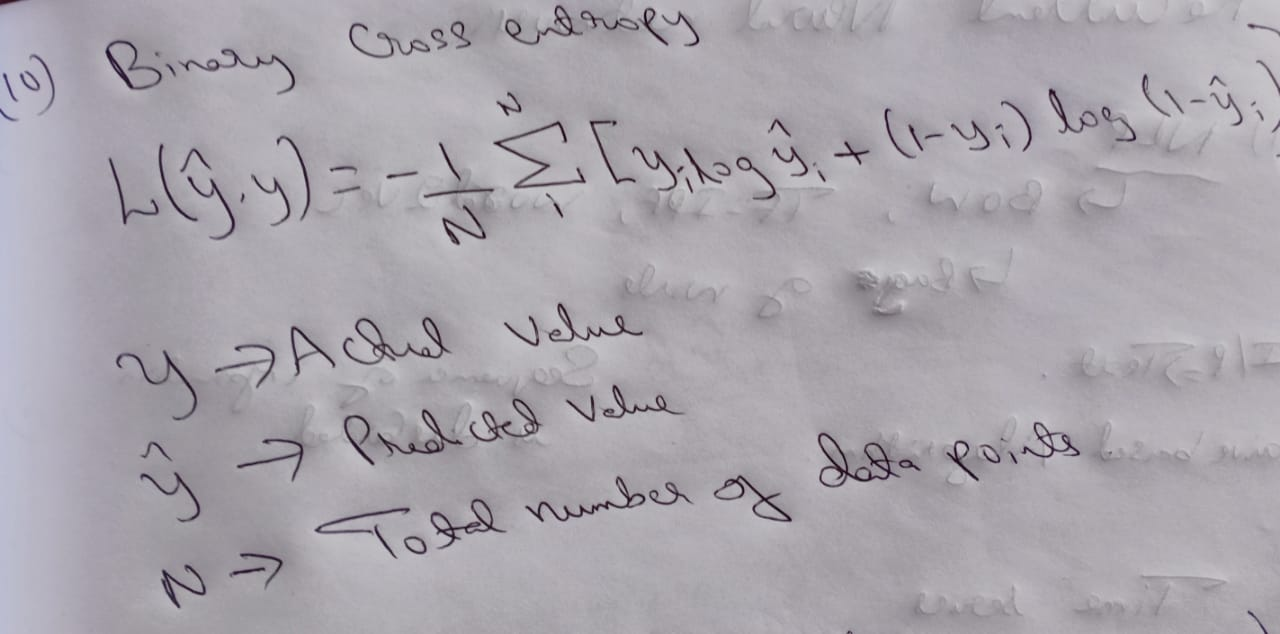 (10) Binary Cross entropy
L(ŷ,y) = - 1/N Σ_1^N [y_i log ŷ_i + (1-y_i) log (1-ŷ_i)
y → Actual Value
ŷ → Predicted Value
N → Total number of data points